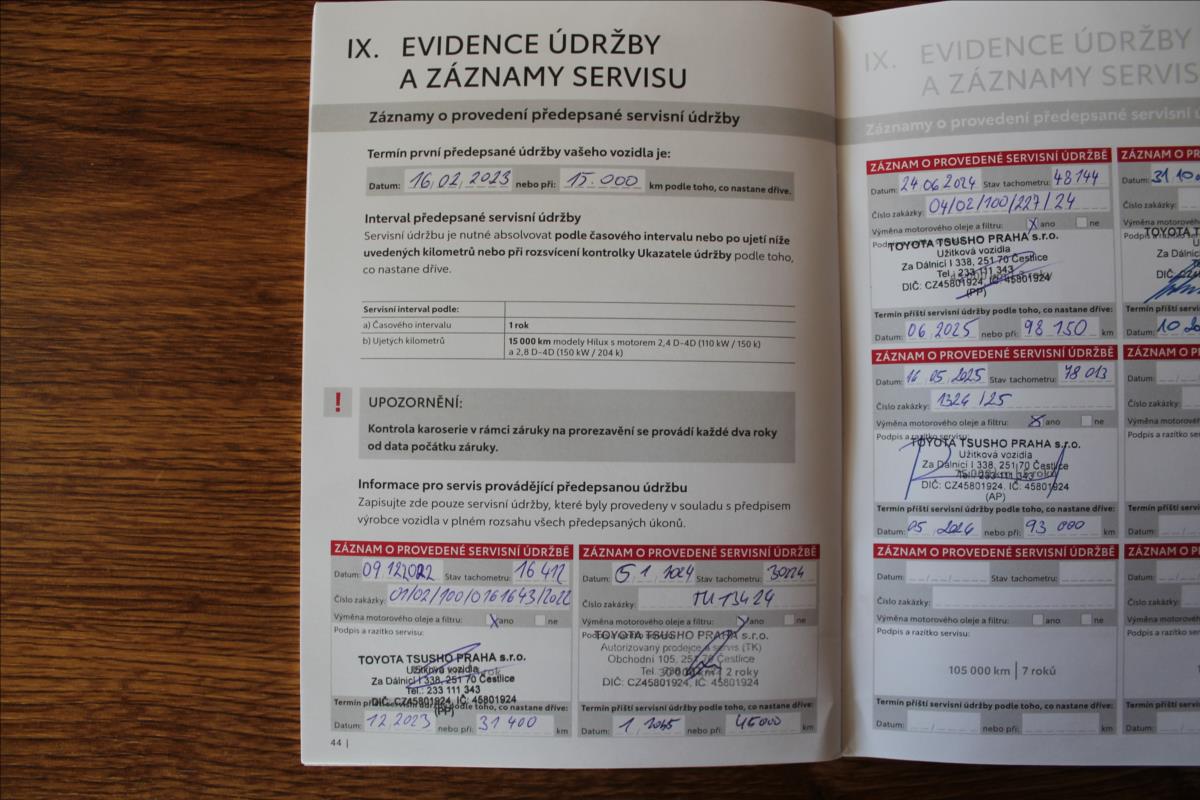 IX. EVIDENCE ÚDRŽBY
A ZÁZNAMY SERVISU
Záznamy o provedení předepsané servisní údržby
Termín první předepsané údržby vašeho vozidla je:
Datum: 16.02.2023 nebo při: 15.000 km podle toho, co nastane dříve.
Interval předepsané servisní údržby
Servisní údržbu je nutné absolvovat podle časového intervalu nebo po ujetí níže
uvedených kilometrů nebo při rozsvícení kontrolky Ukazatele údržby podle toho,
co nastane dříve.
Servisní interval podle:
a) Časového intervalu 1 rok
b) Ujetých kilometrů 15 000 km modely Hilux s motorem 2,4 D-4D (110 kW / 150 k)
a 2,8 D-4D (150 kW / 204 k)
! UPOZORNĚNÍ:
Kontrola karoserie v rámci záruky na prorezavění se provádí každé dva roky
od data počátku záruky.
Informace pro servis provádějící předepsanou údržbu
Zapisujte zde pouze servisní údržby, které byly provedeny v souladu s předpisem
výrobce vozidla v plném rozsahu všech předepsaných úkonů.
ZÁZNAM O PROVEDENÉ SERVISNÍ ÚDRŽBĚ
Datum: 09 12 2022 Stav tachometru: 16 412
Číslo zakázky:
Výměna motorového oleje a filtru: X ano ne
Podpis a razítko servisu:
TOYOTA TSUSHO PRAHA s.r.o.
Užitková vozidla
Za Dálnicí I 338, 251 70 Čestlice
Tel.: 233 111 343
DIČ: CZ45801924, IČ: 45801924
(PP)
Termín příští servisní údržby podle toho, co nastane dříve:
Datum: 12.2023 nebo při: 31 400 km
ZÁZNAM O PROVEDENÉ SERVISNÍ ÚDRŽBĚ
Datum: 5 1 2024 Stav tachometru: 30224
Číslo zakázky: TU 134 24
Výměna motorového oleje a filtru: ano ne
TOYOTA TSUSHO PRAHA s.r.o.
Autorizovaný prodejce a servis (TK)
Obchodní 105, 251 70 Čestlice
30 000 km 2 roky
DIČ: CZ45801924, IČ: 45801924
Termín příští servisní údržby podle toho, co nastane dříve:
Datum: nebo při: 45000 km
44 |
IX. EVIDENCE ÚDRŽBY
A ZÁZNAMY SERVIS
Záznamy o provedení předepsané servisní ú
ZÁZNAM O PROVEDENÉ SERVISNÍ ÚDRŽBĚ
Datum: 24 06 2024 Stav tachometru: 48144
Číslo zakázky: 04/02/100/227/24
Výměna motorového oleje a filtru: X ano ne
TOYOTA TSUSHO PRAHA s.r.o.
Užitková vozidla
Za Dálnicí I 338, 251 70 Čestlice
Tel.: 233 111 343
DIČ: CZ45801924, IČ: 45801924
(PP)
Termín příští servisní údržby podle toho, co nastane dříve:
Datum: 06 2025 nebo při: 98 150 km
ZÁZNAM O PROVEDENÉ SERVISNÍ ÚDRŽBĚ
Datum: 16 05 2025 Stav tachometru: 78 013
Číslo zakázky: 1324 /25
Výměna motorového oleje a filtru: X ano ne
Podpis a razítko servisu:
TOYOTA TSUSHO PRAHA s.r.o.
Užitková vozidla
Za Dálnicí I 338, 251 70 Čestlice
Tel.: 233 111 343
DIČ: CZ45801924, IČ: 45801924
(AP)
Termín příští servisní údržby podle toho, co nastane dříve:
Datum: 05 2026 nebo při: 93 000 km
ZÁZNAM O PROVEDENÉ SERVISNÍ ÚDRŽBĚ
Datum: Stav tachometru:
Číslo zakázky:
Výměna motorového oleje a filtru: ano ne
Podpis a razítko servisu:
105 000 km | 7 roků
Termín příští servisní údržby podle toho, co nastane dříve:
Datum: nebo při: km
ZÁZNAM O PR
Datum: 31 10
Číslo zakázky:
Výměna motorové
TOYOTA T
Termín příští servis
Datum: 10 20
ZÁZNAM O PR
Datum:
Číslo zakázky:
Výměna motorové
Podpis a razítko ser
Termín příští servis
Datum:
ZÁZNAM O PR
Datum:
Číslo zakázky:
Výměna motorové
Podpis a razítko ser
Termín příští servis
Datum: